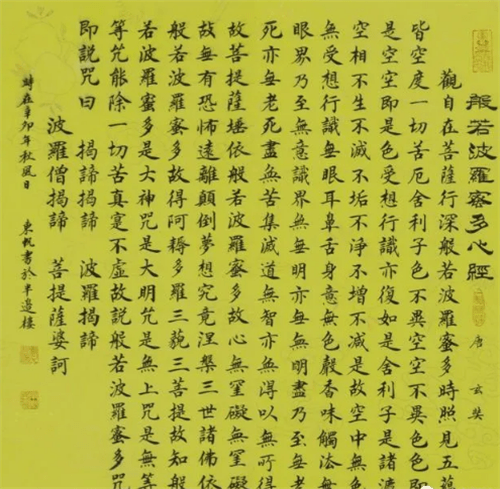 般若波羅蜜多心經 唐 玄奘
觀自在菩薩行深般若波羅蜜多時照見五蘊
皆空度一切苦厄舍利子色不異空空不異色色即
是空空即是色受想行識亦復如是舍利子是諸法
空相不生不滅不垢不淨不增不減是故空中無色
無受想行識無眼耳鼻舌身意無色聲香味觸法無
眼界乃至無意識界無無明亦無無明盡乃至無老
死亦無老死盡無苦集滅道無智亦無得以無所得
故菩提薩埵依般若波羅蜜多故心無罣礙無罣礙
故無有恐怖遠離顛倒夢想究竟涅槃三世諸佛依
般若波羅蜜多故得阿耨多羅三藐三菩提故知般
若波羅蜜多是大神咒是大明咒是無上咒是無等
等咒能除一切苦真實不虛故說般若波羅蜜多咒
即說咒曰 揭諦揭諦 波羅揭諦
波羅僧揭諦 菩提薩婆訶
時在辛卯年秋風日 東帆書於半邊樓